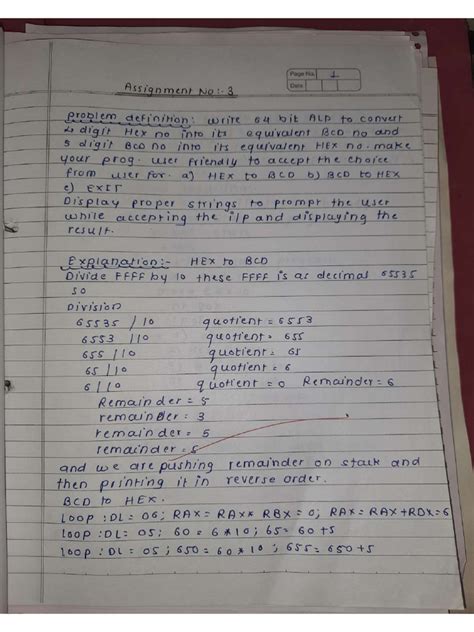 Page No. 1
Date
Assignment No:- 3
problem definition: write 64 bit ALP to convert
4 digit Hex no into its equivalent BCD no and
5 digit BCD no into its equivalent HEX no. make
your prog. user friendly to accept the choice
from user for. a) HEX to BCD b) BCD to HEX
c) EXIT
Display proper strings to prompt the user
while accepting the i/p and displaying the
result.
Explanation:- HEX to BCD
Divide FFFF by 10 these FFFF is as decimal 65535
so
Division
65535 / 10 quotient = 6553
6553 / 10 quotient = 655
655 / 10 quotient = 65
65 / 10 quotient = 6
6 / 10 quotient = 0 Remainder = 6
Remainder = 5
remainder = 3
remainder = 5
remainder = 5
and we are pushing remainder on stack and
then printing it in reverse order.
BCD to HEX.
loop : DL = 06; RAX = RAX* RBX = 0; RAX = RAX+RDX = 6
loop : DL = 05; 60 = 6*10; 65 = 60+5
loop : DL = 05; 650 = 60*10; 655 = 650+5